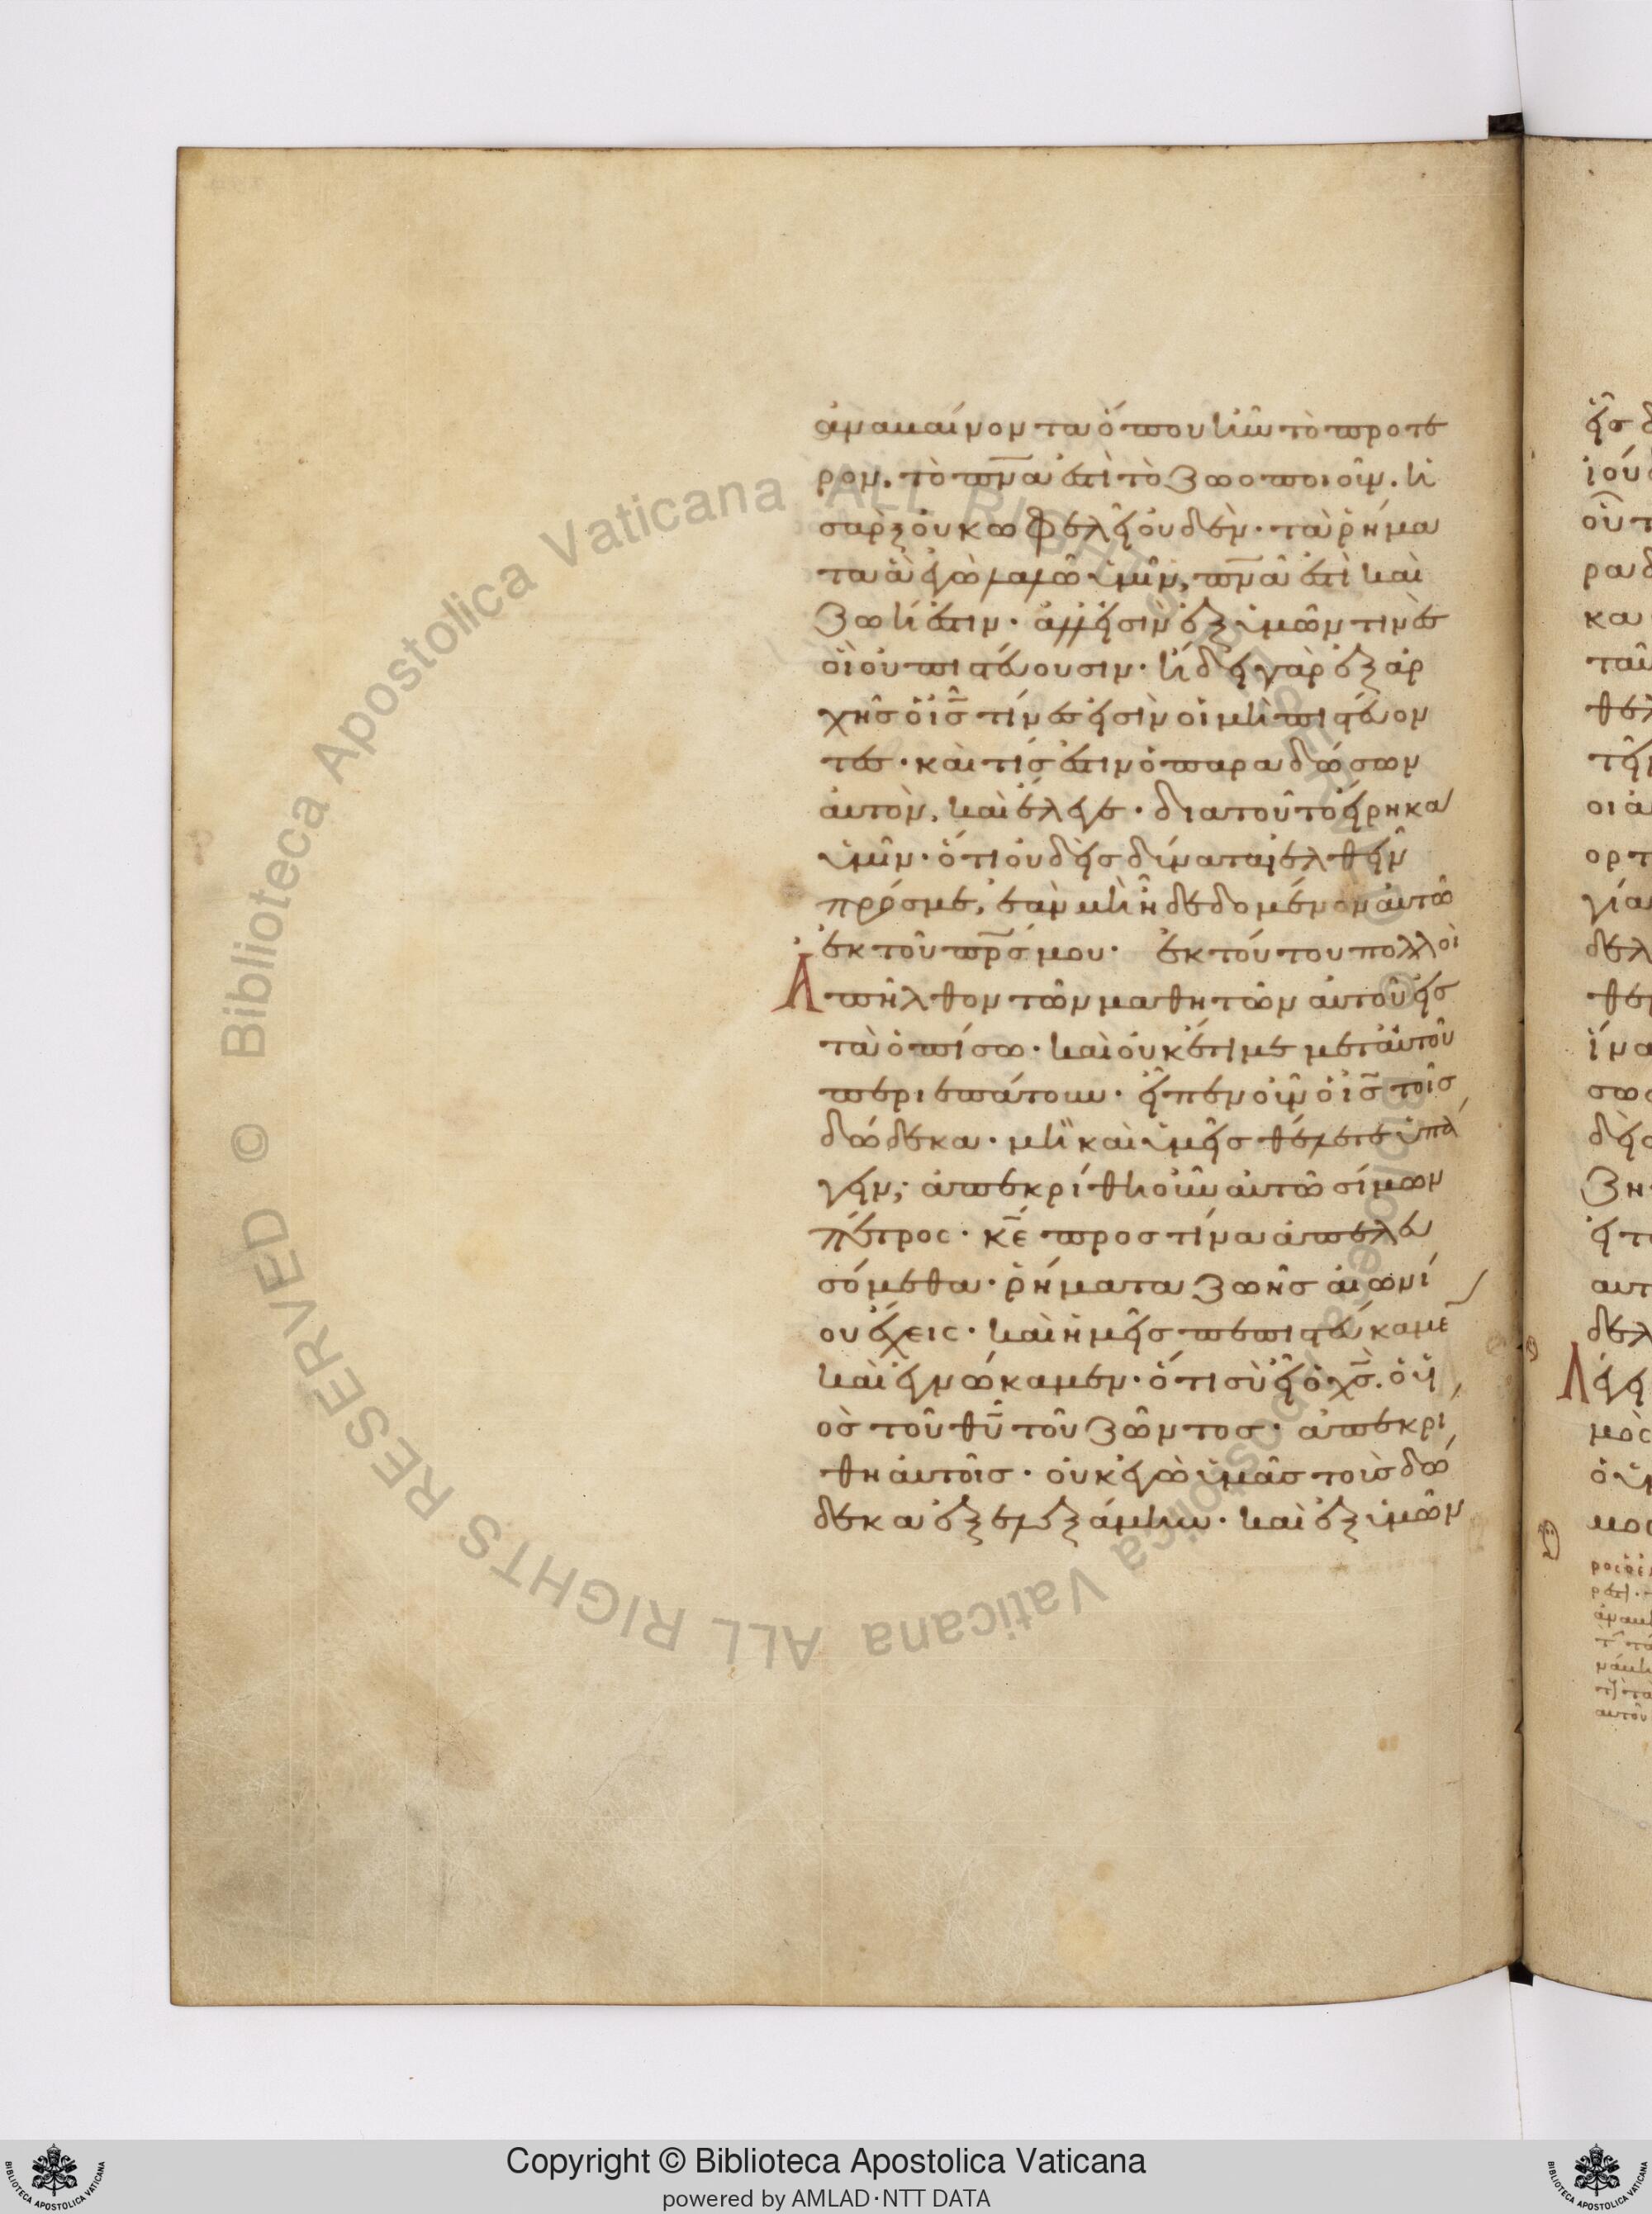 ἀναβαίνοντα ὅπου ἦν τὸ προτε
ρον. τὸ πν̅α ἐστὶ τὸ ζωοποιοῦν. ἡ
σαρξ οὐκ ὠφελεῖ οὐδὲν· τὰ ῥήμα
τα ἃ ἐγὼ λαλῶ ὑμῖν, πν̅α ἐστὶ καὶ
ζωή ἐστιν· ἀλλ εἰσὶν ἐξ ὑμῶν τινὲς
οἳ οὐ πιστεύουσιν· ἤδει γὰρ ἐξ ἀρ
χῆς ὁ ἰς̅ τίνες εἰσὶν οἱ μὴ πιστεύον
τες· καὶ τίς ἐστιν ὁ παραδώσων
αὐτὸν, καὶ ἔλεγε· διατοῦτο εἴρηκα
ὑμῖν· ὅτι οὐδεὶς δύναται ἐλθεῖν
πρός με, ἐὰν μὴ ἦ δεδομένον αὐτῶ
ἐκ τοῦ πρ̅ς μου· ἐκ τούτου πολλοὶ
Ἀπῆλθον τῶν μαθητῶν αὐτοῦ εἰς
τὰ ὀπίσω· καὶ οὐκέτι μετ αὐτοῦ
περιεπάτουν· εἶπεν οὖν ὁ ἰς̅ τοῖς
δώδεκα· μὴ καὶ ὑμεῖς θέλετε ὑπά
γειν; ἀπεκρίθη οὖν αὐτῶ σίμων
πέτρος· κ̅ε προς τίνα ἀπελευ
σόμεθα· ῥήματα ζωῆς αἰωνί
ου ἔχεις· καὶ ἡμεῖς πεπιστεύκαμε̅
καὶ ἐγνώκαμεν· ὅτι σὺ εἶ ὁ χς̅. ὁ ὑι
ὸς τοῦ θυ̅ τοῦ ζῶντος· ἀπεκρί
θη αὐτοῖς· οὐκ ἐγὼ ὑμᾶς τοὺς δώ
δεκα ἐξελεξάμην· καὶ ἐξ ὑμῶν
Copyright © Biblioteca Apostolica Vaticana
powered by AMLAD·NTT DATA